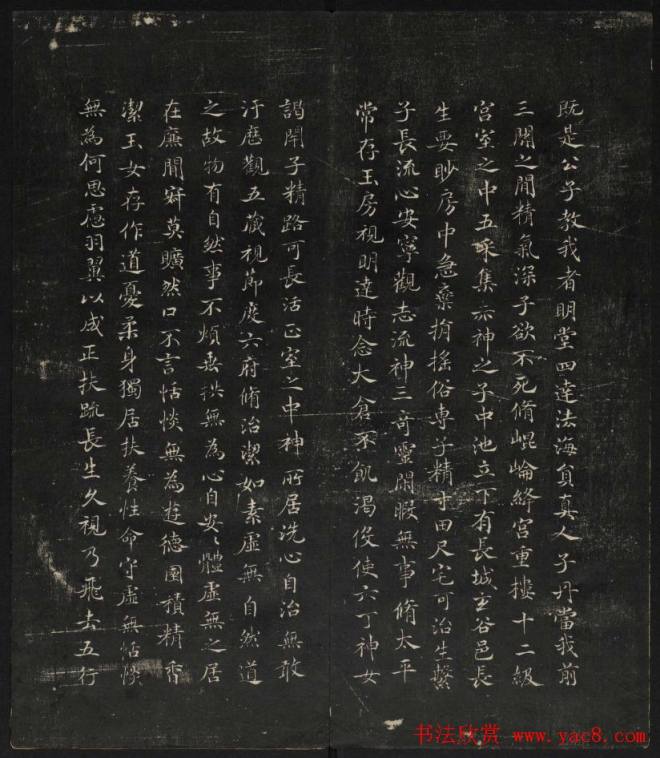 既是公子教我者明堂四達法海負真人子丹當我前
三關之間精氣深子欲不死脩崐崘絳宮重樓十二級
宮室之中五采集赤神之子中池立下有長城玄谷邑長
生要眇房中急棄捐搖俗專子精寸田尺宅可治生繫
子長流心安寧觀志流神三奇靈閒暇無事脩太平
常存玉房視明達時念大倉不飢渴役使六丁神女
謁閉子精路可長活正室之中神所居洗心自治無敢
汙歷觀五藏視節度六府脩治潔如素虛無自然道
之故物有自然事不煩垂拱無為心自安〻體虛無之居
在廉間寂莫曠然口不言恬惔無為遊德園積精香
潔玉女存作道憂柔身獨居扶養性命守虛無恬惔
無為何思慮羽翼以成正扶疏長生久視乃飛去五行
书法欣赏 www.yac8.com